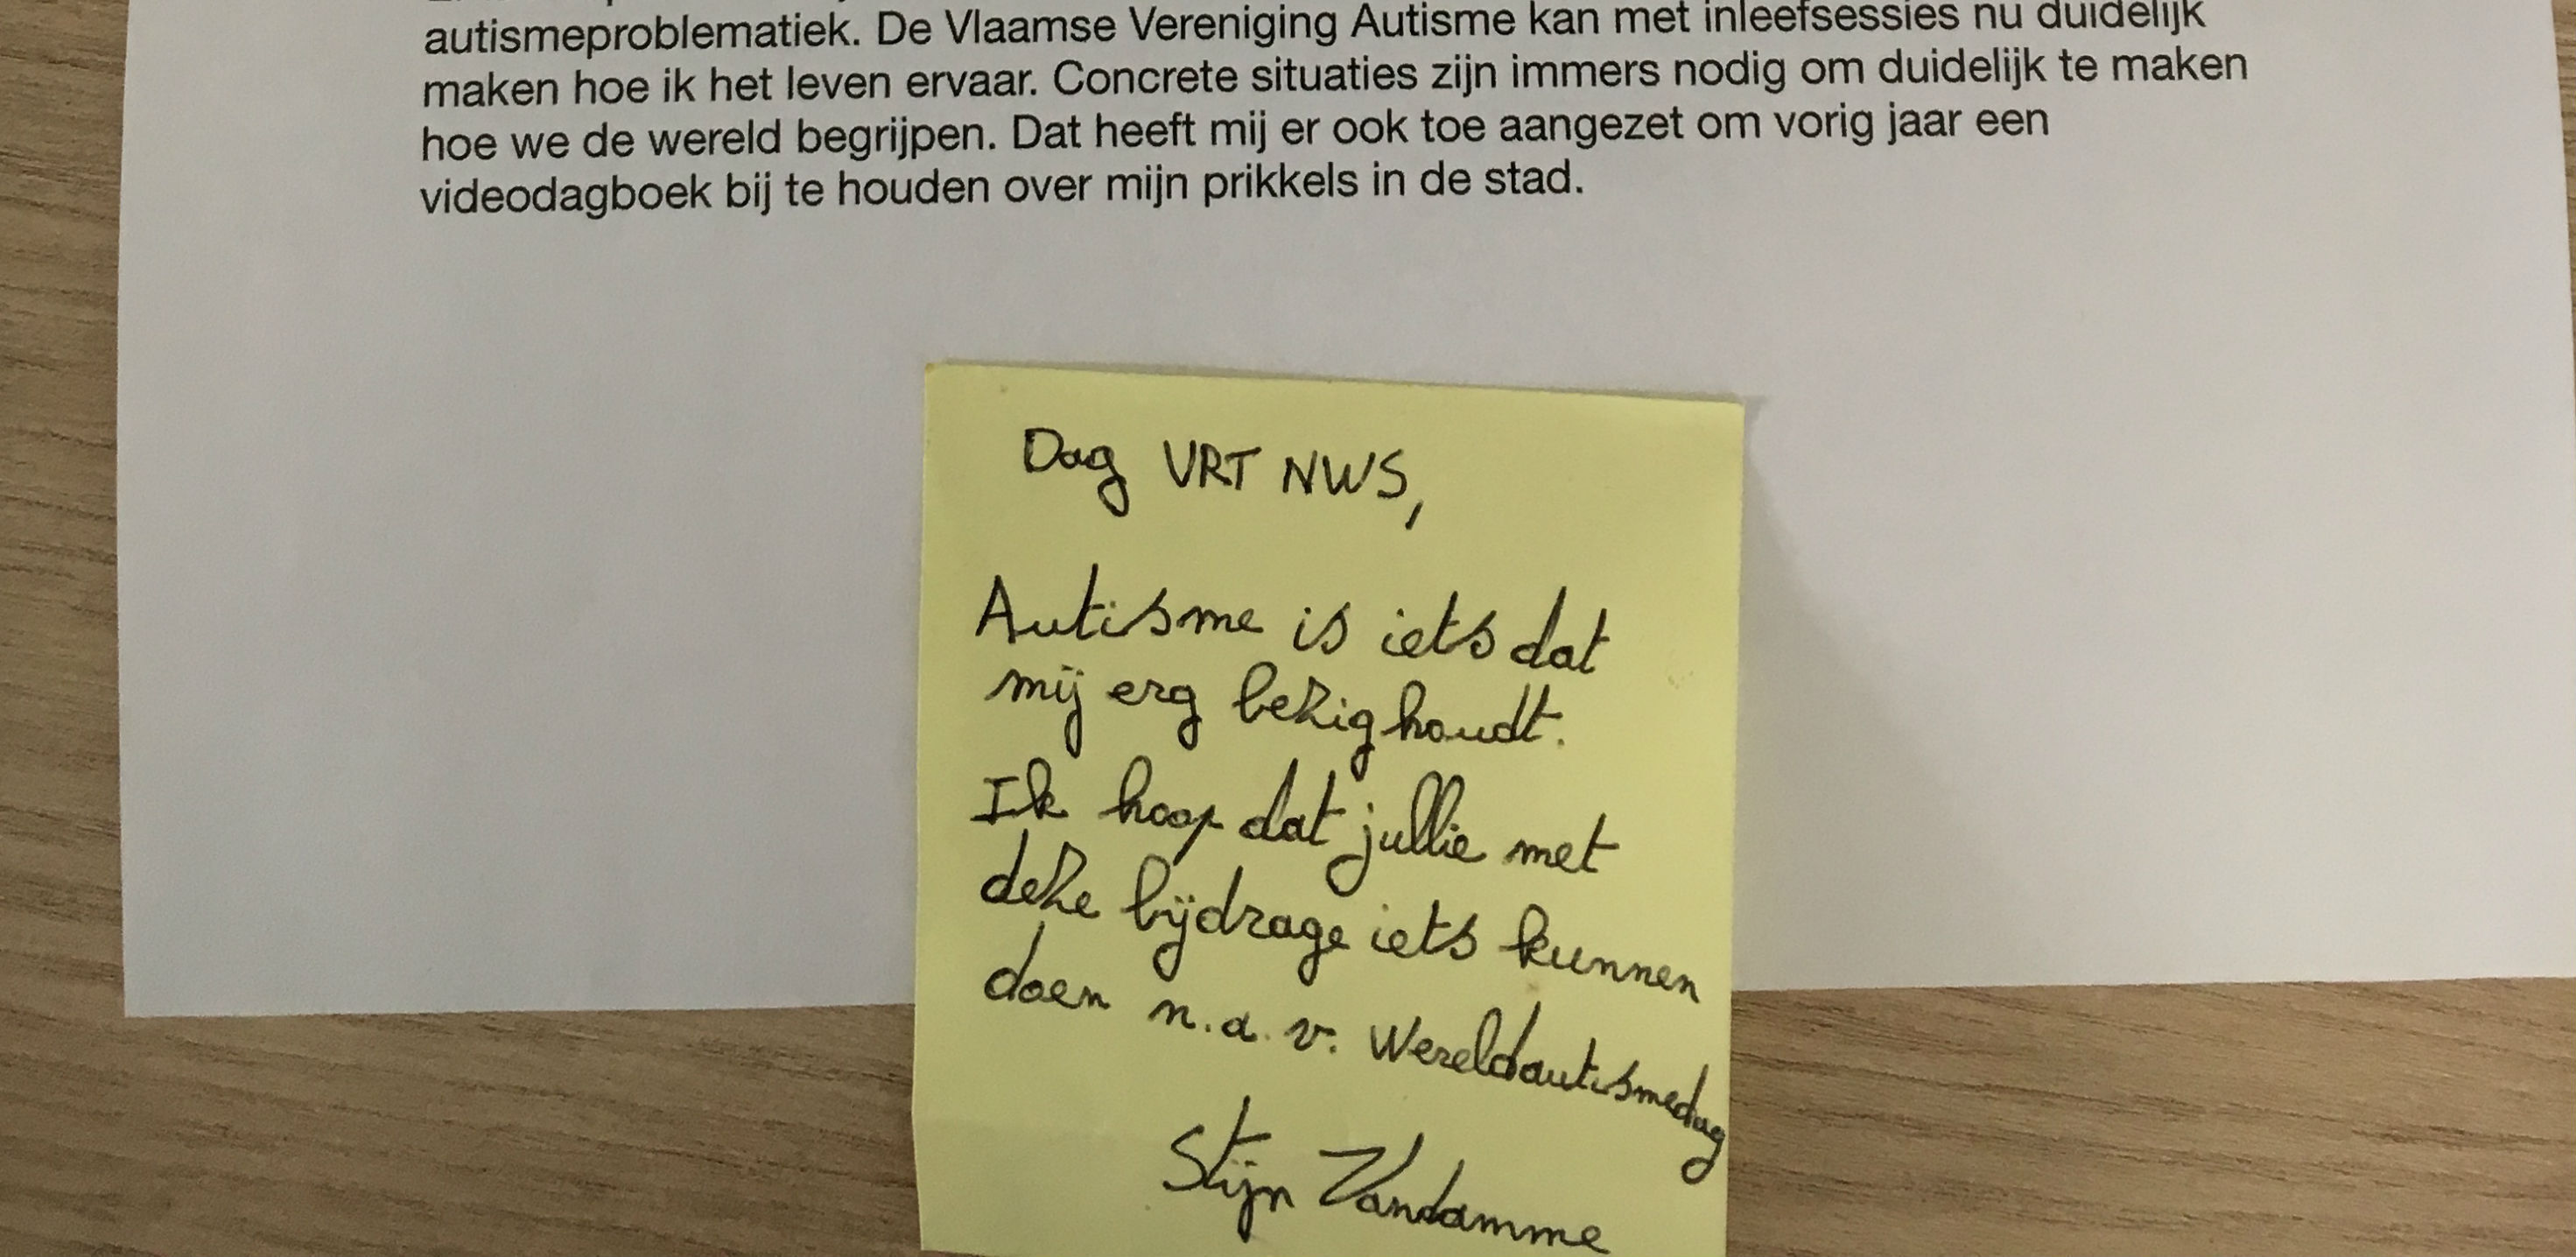 autismeproblematiek. De Vlaamse Vereniging Autisme kan met inleefsessies nu duidelijk
maken hoe ik het leven ervaar. Concrete situaties zijn immers nodig om duidelijk te maken
hoe we de wereld begrijpen. Dat heeft mij er ook toe aangezet om vorig jaar een
videodagboek bij te houden over mijn prikkels in de stad.
Dag VRT NWS,
Autisme is iets dat
mij erg bezig houdt.
Ik hoop dat jullie met
deze bijdrage iets kunnen
doen n.a.v. Wereldautismedag
Stijn Vandamme